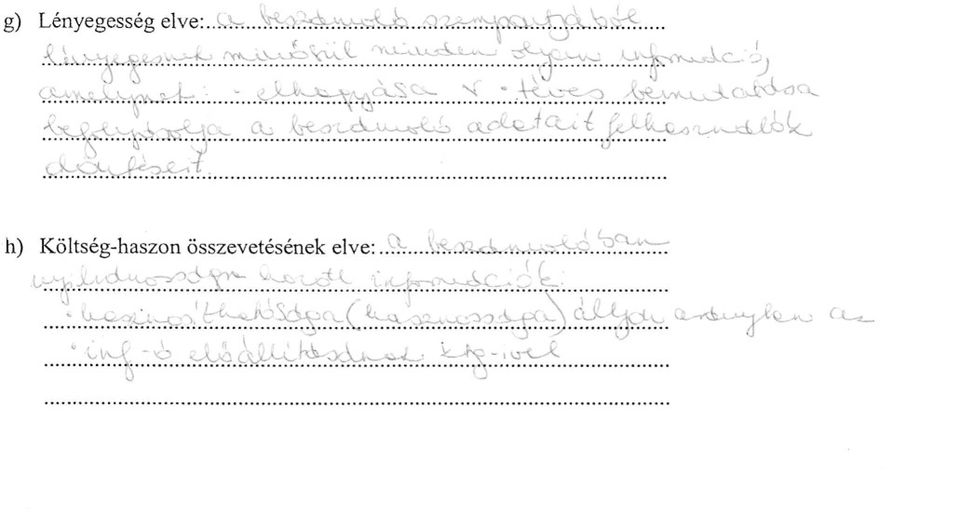 g) Lényegesség elve: a beszámoló szempontjából
lényegesnek minősül minden olyan információ,
amelynek: · elhagyása v · téves bemutatása
befolyásolja a beszámoló adatait felhasználók
döntéseit.
h) Költség-haszon összevetésének elve: a beszámolóban
nyilvánosságra hozott információk:
· hasznosíthatósága (hasznossága) álljon arányban az
· inf-ó előállításának ktg-ivel